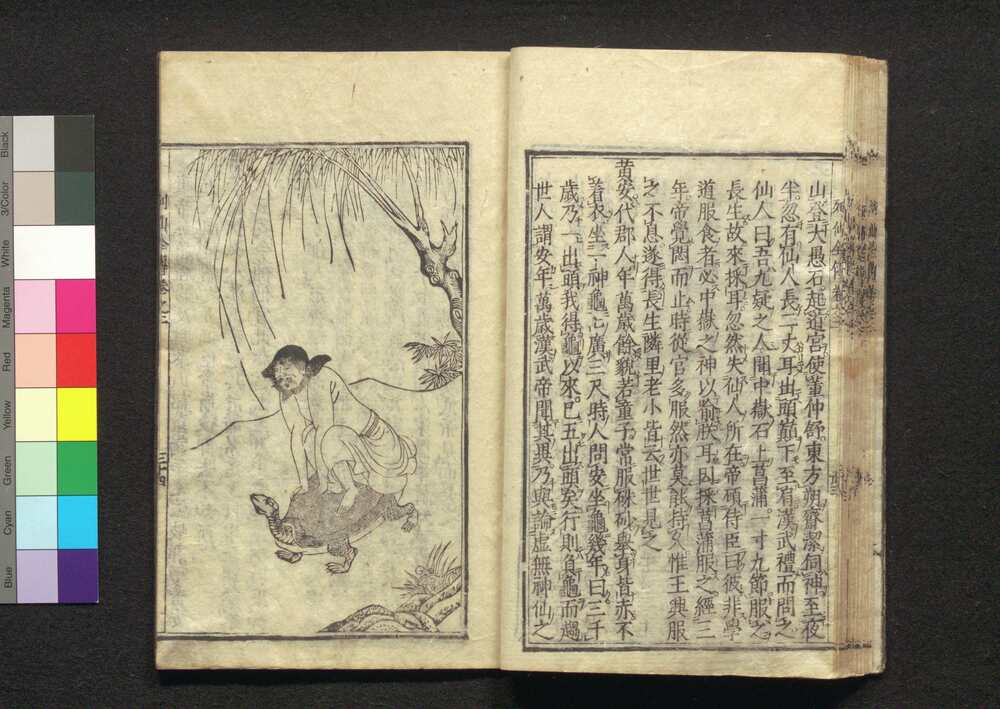 山登大愚石起道宮使董仲舒東方朔齋潔伺神至夜
半忽有仙人長二丈耳出頭巓下至肩漢武禮而問之
仙人曰吾九疑之人聞中嶽石上菖蒲一寸九節服之
長生故來採耳忽然失仙人所在帝顧侍臣曰彼非學
道服食者必中嶽之神以喻朕耳因採菖蒲服之經三
年帝覺悶而止時從官多服然亦莫能持久惟王興服
之不息遂得長生隣里老小皆云世世見之
黄安代郡人年萬歲餘貌若童子常服硃砂擧身皆赤不
着衣坐一神龜廣三尺時人問安坐龜幾年曰三千
歲乃一出頭我得龜以來巳五出頭矣行則負龜而趨
世人謂安年萬歲漢武帝聞其異乃與論虛無神仙之
三四
Black
3/Color
White
Magenta
Red
Yellow
Green
Cyan
Blue